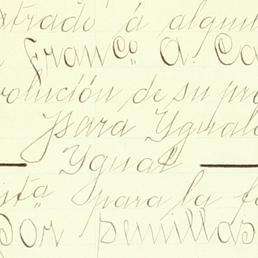 strado á alguil
Franco. A. Ca
volución de su pro
Para Yguala
Ygual
ista para la fo
por semillas